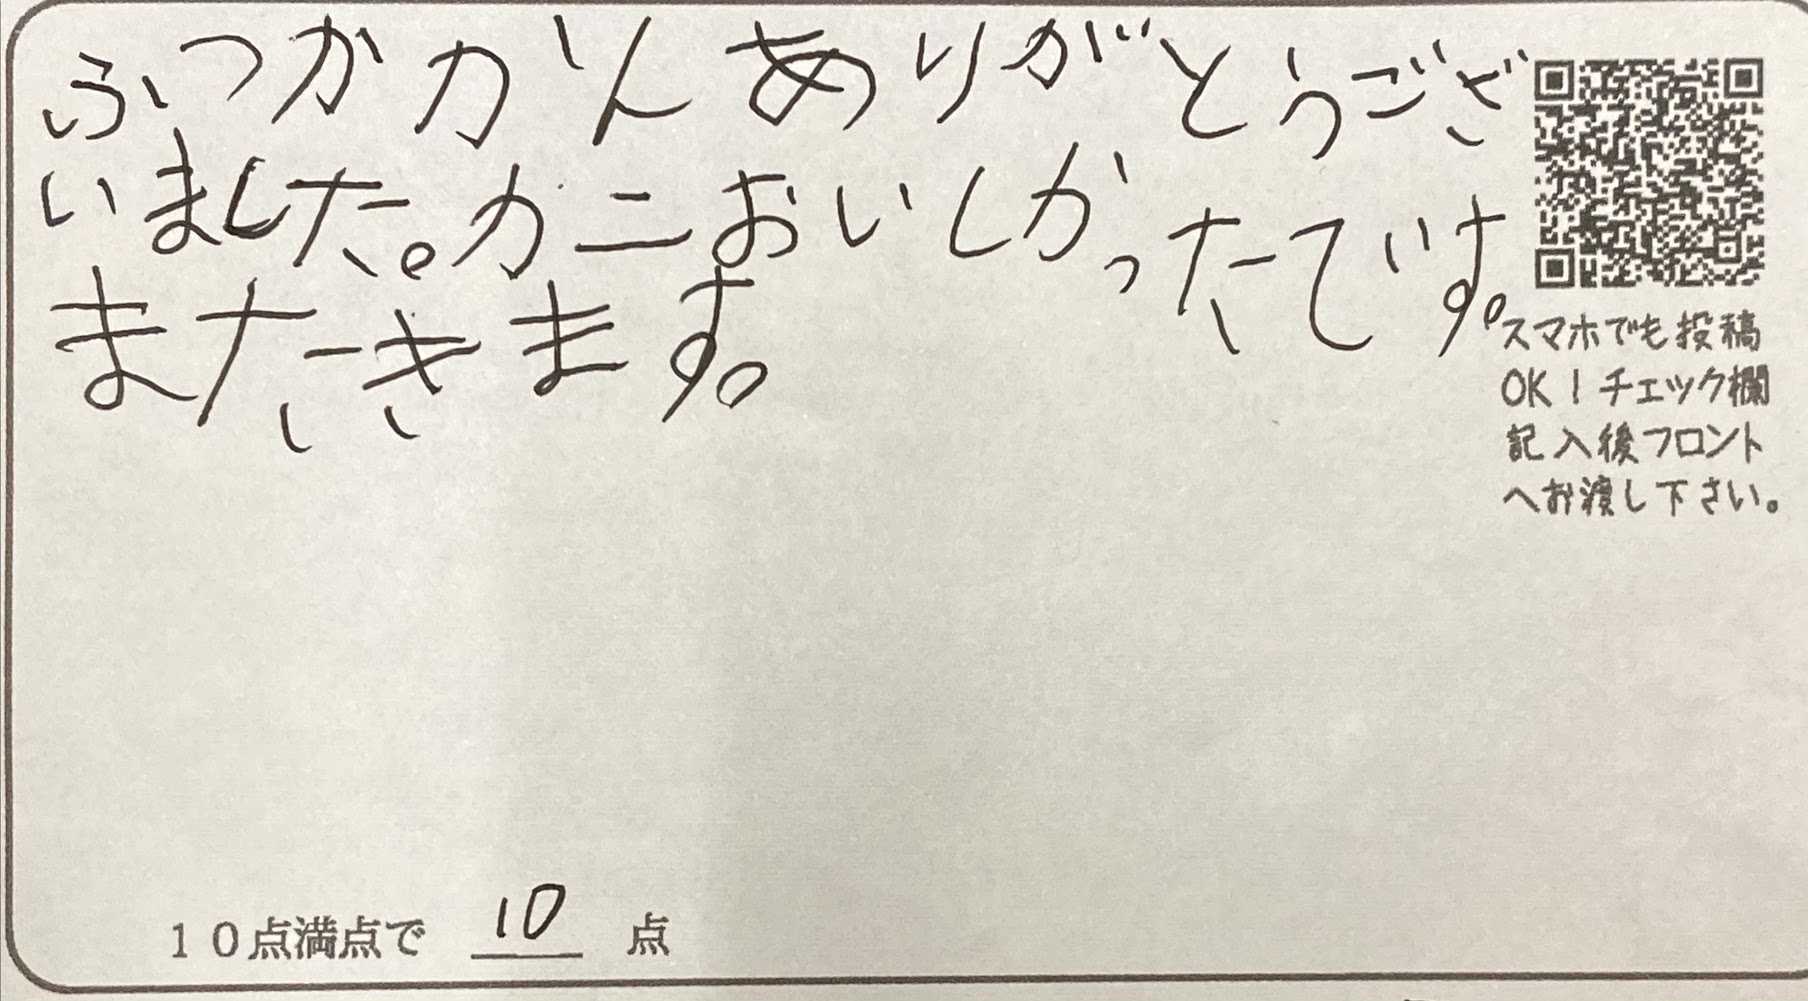 ふつかかんありがとうござ
いました。カニおいしかったです。
またきます。
スマホでも投稿
OK！チェック欄
記入後フロント
へお渡し下さい。
１０点満点で 10 点